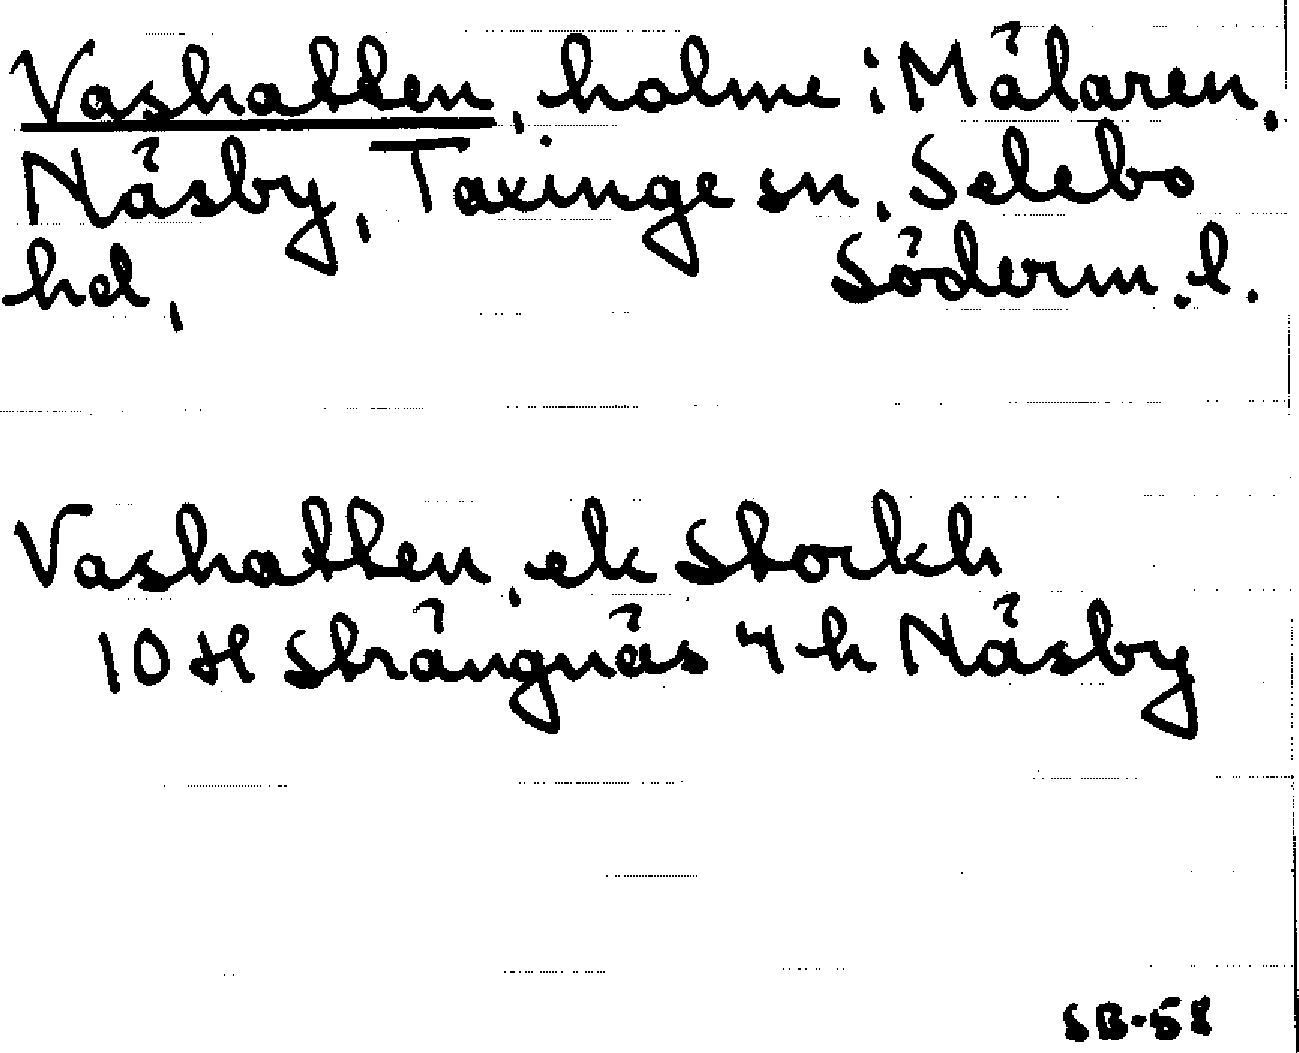 Vashatten, holme i Mälaren,
Näsby, Taxinge sn, Selebo
hd, Söderm. l.
Vashatten, ek Stockh
10 H Strängnäs 4 h Näsby
SB-58